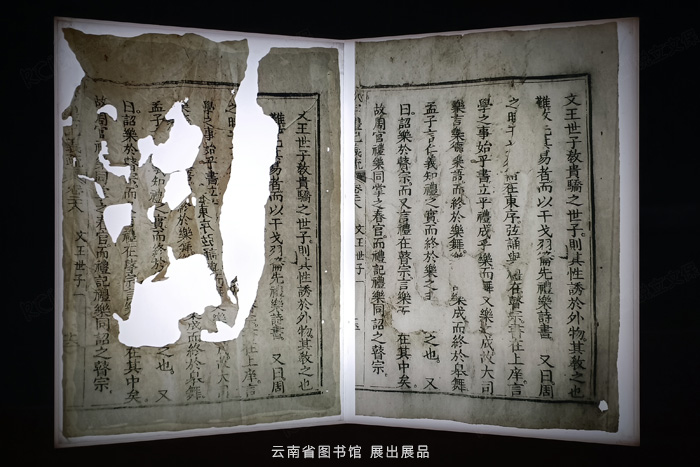 文王世子教貴驕之世子則其性誘於外物其教之也
難 易者而以干戈羽籥先禮樂詩書 又曰周
之 而在東序弦誦 禮在瞽宗書在上庠言
學之事始乎書立乎禮成乎樂而舞又樂之成故大司
樂言樂德樂語而終於樂舞 成而終於樂舞
孟子言仁義知禮之實而終於樂之 之也 又
曰詔樂於瞽宗而又言禮在瞽宗言樂 在其中矣
故周官禮樂同掌之春官而禮記禮樂同詔之瞽宗
文王世子 一
文王世子教貴驕之世子則其性誘於外物其教之也
難 易者而以干戈羽籥先禮樂詩書 又曰周
之 在上庠言
學之事始乎書立 在東序弦誦
而終於樂 成而終於樂舞
孟子 知禮之實而終 之也 又
曰詔樂於瞽宗 禮在瞽 在其中矣
故周官禮樂同掌之春官而禮記禮樂同詔之瞽宗
文王世子 一
云南省图书馆 展出展品